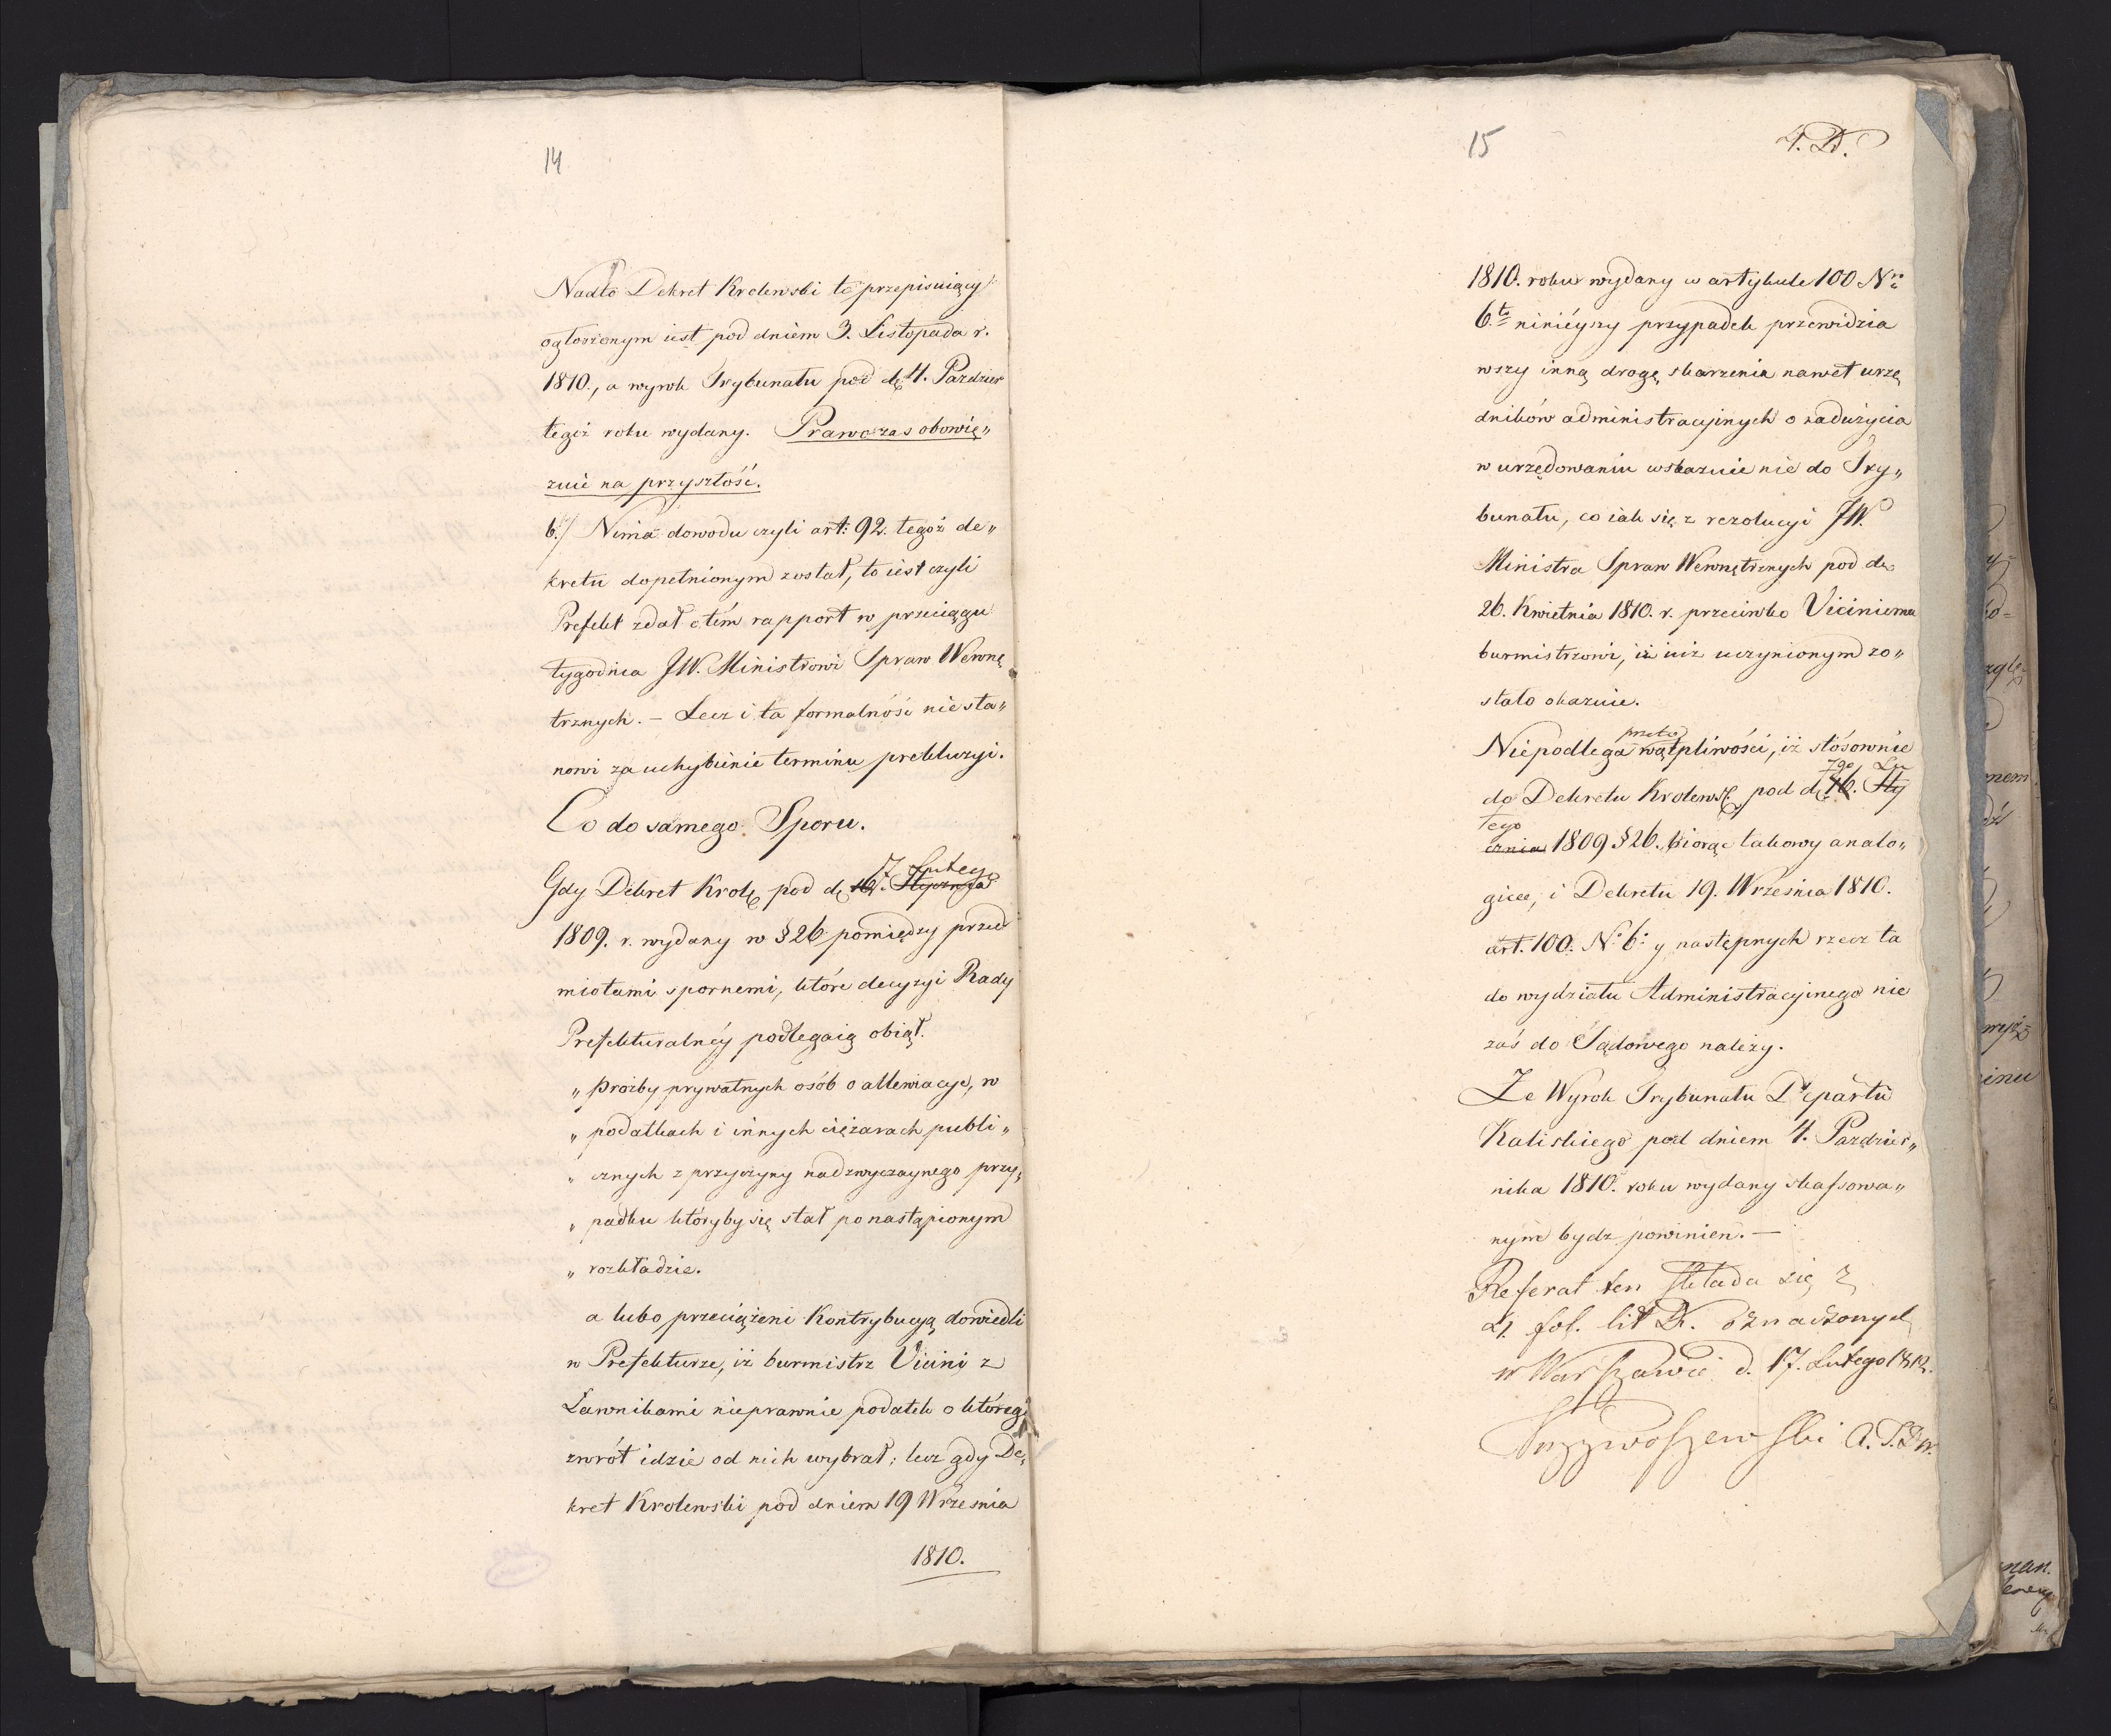 14
Nadto Dekret Krolewski to przepisuiący
ogłoszonym iest pod dniem 3. Listopada r.
1810., a wyrok Trybunału pod d. 4. Pazdzier
tegoż roku wydany. Prawo zas obowię„
zuie na przyszłość.
6./ Nima dowodu czyli art: 92. tegoż de„
kretu dopełnionym został, to iest czyli
Prefekt zdał o tém rapport w przeciągu
tygodnia JW. Ministrowi Spraw Wewnę
trznych. – Lecz i ta formalność nie sta„
nowi za uchybienie terminu prekluzyi.
Co do samego Sporu.
7 Lutego
Gdy Dekret Krolę pod d. 16. Stycznia
1809. r. wydany w § 26 pomiędzy przed
miotami spornemi, które decyzyi Rady
Prefekturalnéy podlegaią obiął.
„ Prożby prywatnych osób o allewiacye, w
„ podatkach i innych ciężarach publi„
„ cznych z przyczyny nadzwyczaynego przy„
„ padku któryby się stał po nastąpionym
„ rozkładzie.
a lubo przeciążeni Kontrybucyą dowiedli
w Prefekturze, iż burmistrz Vicini z
Ławnikami nieprawnie podatek o którego
zwrót idzie od nich wybrał; lecz gdy De„
kret Krolewski pod dniem 19 Wrzesnia
1810.
15
4. D.
1810. roku wydany w artykule 100 Nro
6.to niniéyszy przypadek przewidzia
wszy inną drogę skarzenia nawet urzę
dników administracyjnych o nadużycia
w urzędowaniu wskazuie nie do Try„
bunału, co iak się z rezolucyi JW.
Ministra Spraw Wewnętrznych pod d.
26. Kwietnia 1810. r. przeciwko Viciniemu
burmistrzowi, iż iuż uczynionym zo„
stało okazuie.
przeto
Niepodlega wątpliwości, iż stósownie
7go Lu
do Dekretu Krolewsę pod d. 16. Sty
tego
cznia 1809 § 26. biorąc takowy analo„
gice, i Dekretu 19. Września 1810.
art. 100. N: 6: y następnych rzecz ta
do wydziału Administracyjnego nie
zaś do Sądowego należy.
Ze Wyrok Trybunału Departu
Kaliskiego pod dniem 4. Pazdzier„
nika 1810. roku wydany skassowa„
nym bydz powinien. —
Referat ten składa się z
4 fol. lit D. oznaczonych
w Warszawie d. 17. Lutego 1812.
A.